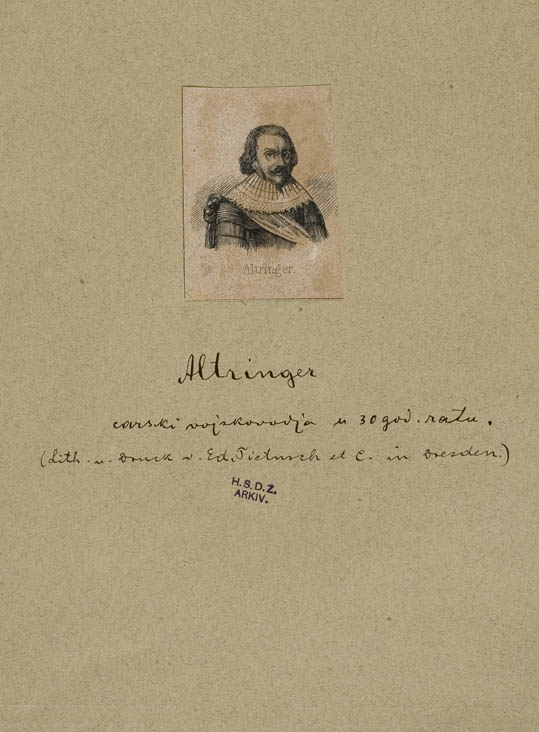 Altringer.
Altringer
carski vojskovodja u 30 god. ratu.
(Lith. u. Druck v. Ed. Pietzsch et C. in Dresden.)
H.S.D.Z.
ARKIV.